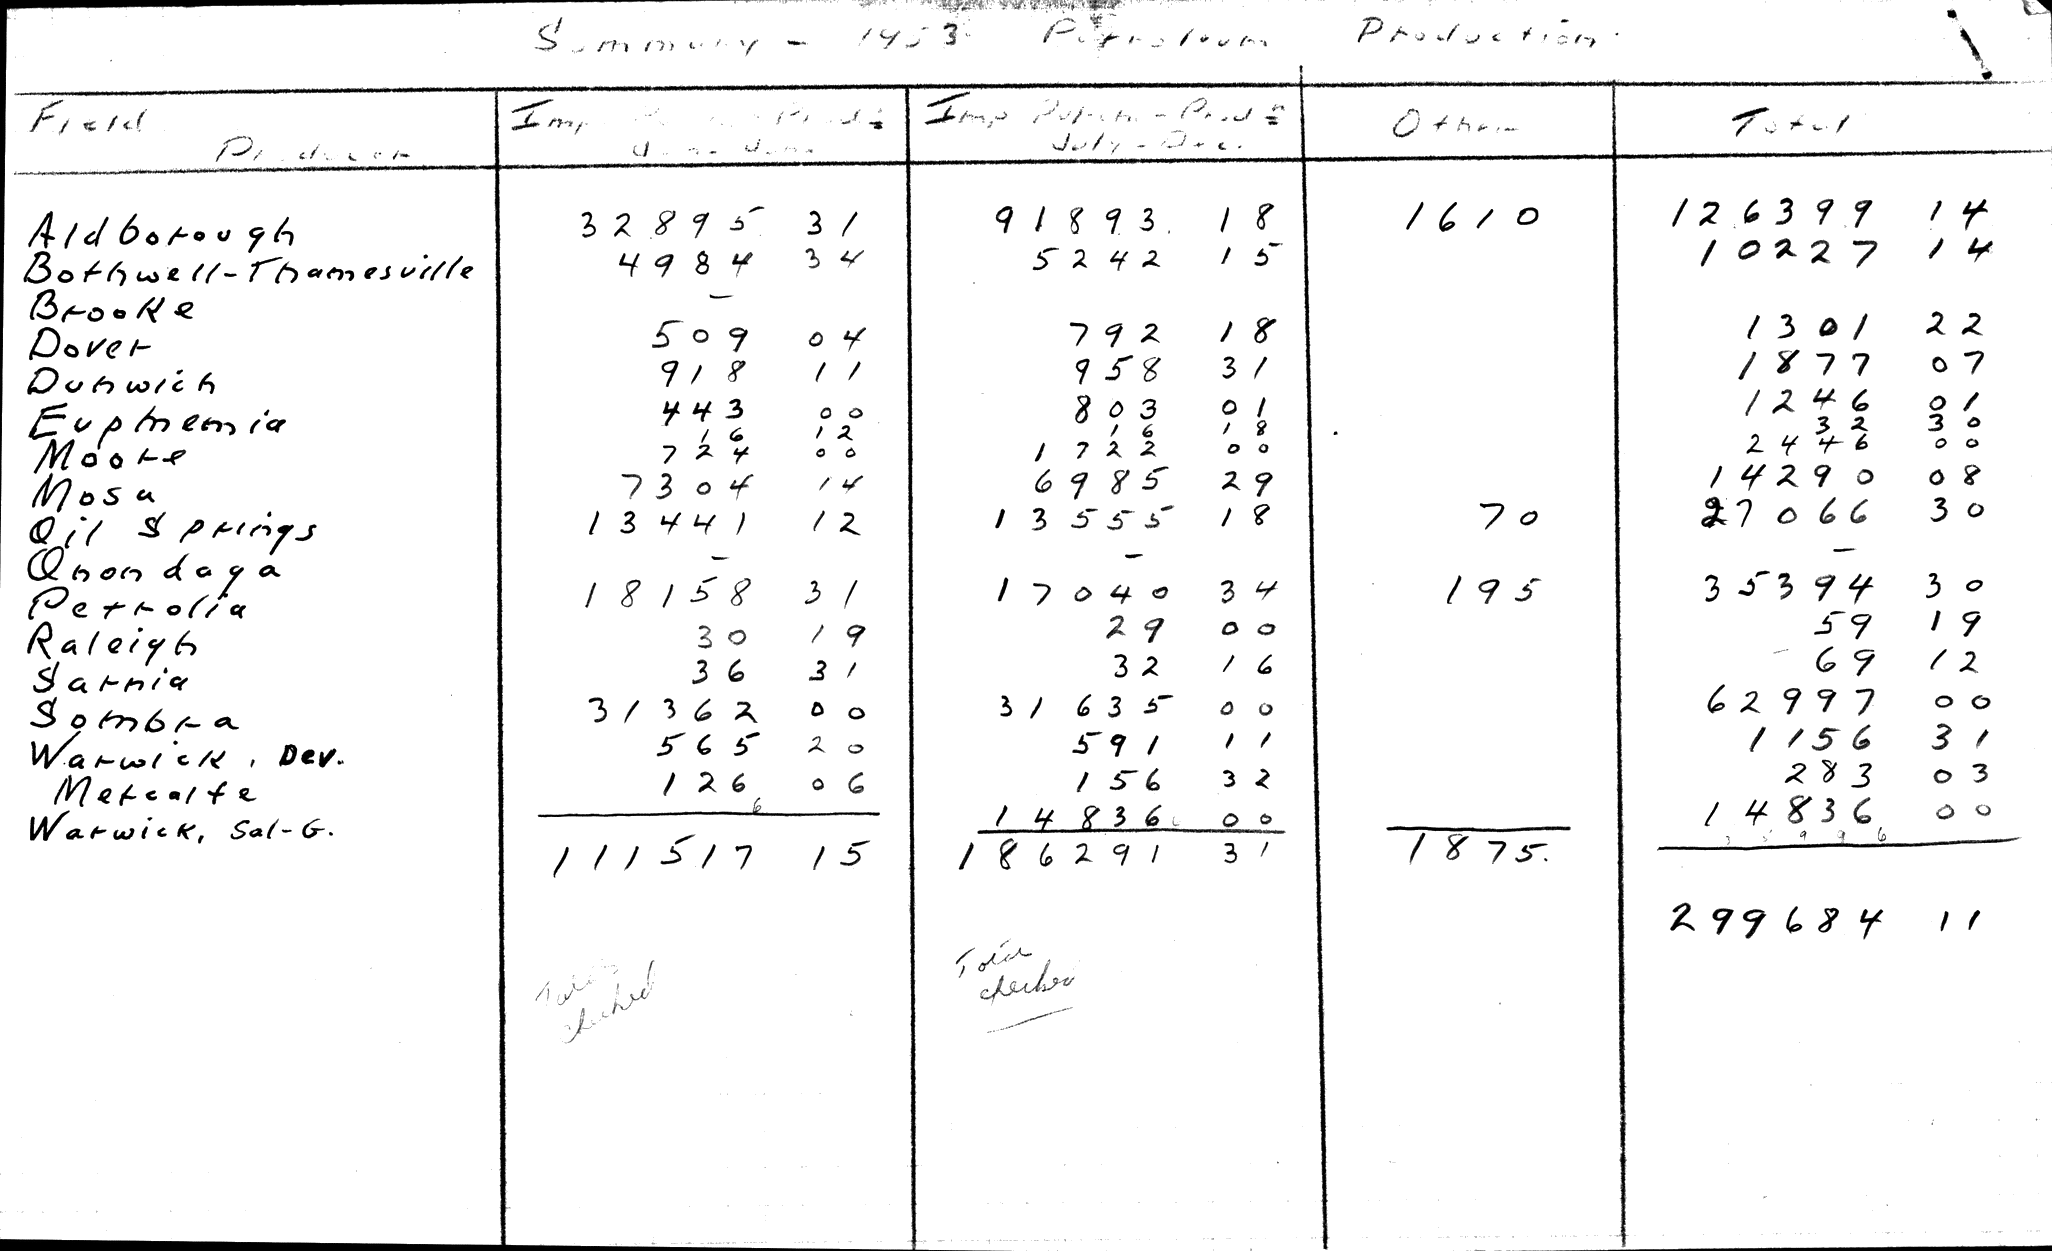 Summary - 1953 Petroleum Production
Field Producer Imp Prod= Imp Prod= July-Dec. Other Total
Aldborough 32895 31 91893 18 1610 126399 14
Bothwell-Thamesville 4984 34 5242 15 10227 14
Brooke –
Dover 509 04 792 18 1301 22
Dunwich 918 11 958 31 1877 07
Euphemia 443 00 803 01 1246 01
16 12 16 18 32 30
Moore 724 00 1722 00 2446 00
Mosa 7304 14 6985 29 14290 08
Oil Springs 13441 12 13555 18 70 27066 30
Onondaga – – –
Petrolia 18158 31 17040 34 195 35394 30
Raleigh 30 19 29 00 59 19
Sarnia 36 31 32 16 69 12
Sombra 31362 00 31635 00 62997 00
Warwick, Dev. 565 20 591 11 1156 31
Metcalfe 126 06 156 32 283 03
Warwick, Sal-G. 14836 00 14836 00
111517 15 186291 31 1875.
299684 11
Total checked
Total checked